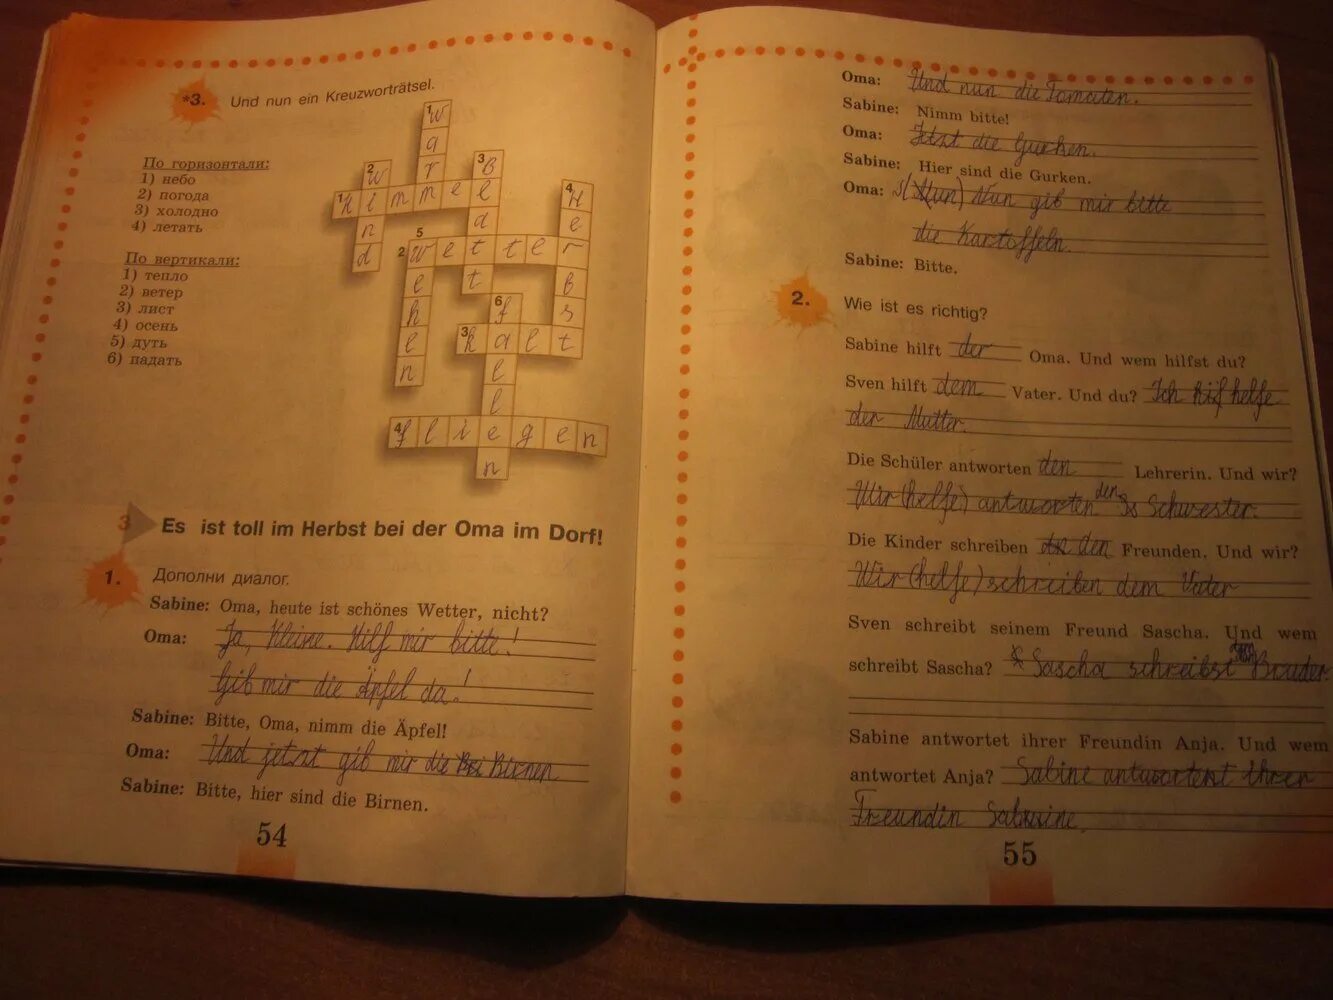 *3. Und nun ein Kreuzworträtsel.
По горизонтали:
1) небо
2) погода
3) холодно
4) летать
По вертикали:
1) тепло
2) ветер
3) лист
4) осень
5) дуть
6) падать
1 warm
2 Wind
3 Blatt
4 Herbst
1 Himmel
5 wehen
2 Wetter
6 fallen
3 kalt
4 fliegen
3 Es ist toll im Herbst bei der Oma im Dorf!
1. Дополни диалог.
Sabine: Oma, heute ist schönes Wetter, nicht?
Oma: Ja, Kleine. Hilf mir bitte!
Gib mir die Äpfel da!
Sabine: Bitte, Oma, nimm die Äpfel!
Oma: Und jetzt gib mir die Birnen
Sabine: Bitte, hier sind die Birnen.
54
Oma: Und nun die Tomaten.
Sabine: Nimm bitte!
Oma: Jetzt die Gurken.
Sabine: Hier sind die Gurken.
Oma: (Nun) Nun gib mir bitte
die Kartoffeln.
Sabine: Bitte.
2. Wie ist es richtig?
Sabine hilft der Oma. Und wem hilfst du?
Sven hilft dem Vater. Und du? Ich helfe
der Mutter.
Die Schüler antworten den Lehrerin. Und wir?
Wir (helfe) antworten den Schwester.
Die Kinder schreiben den Freunden. Und wir?
Wir (helfe) schreiben dem Vater
Sven schreibt seinem Freund Sascha. Und wem
schreibt Sascha? Sascha schreibst Bruder.
Sabine antwortet ihrer Freundin Anja. Und wem
antwortet Anja? Sabine antwortent ihrer
Freundin Sabine.
55